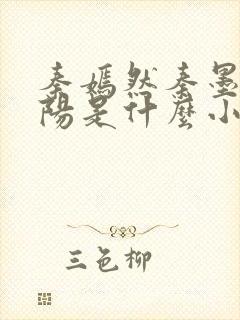 秦嫣然秦墨
陽是什麼小
三色柳